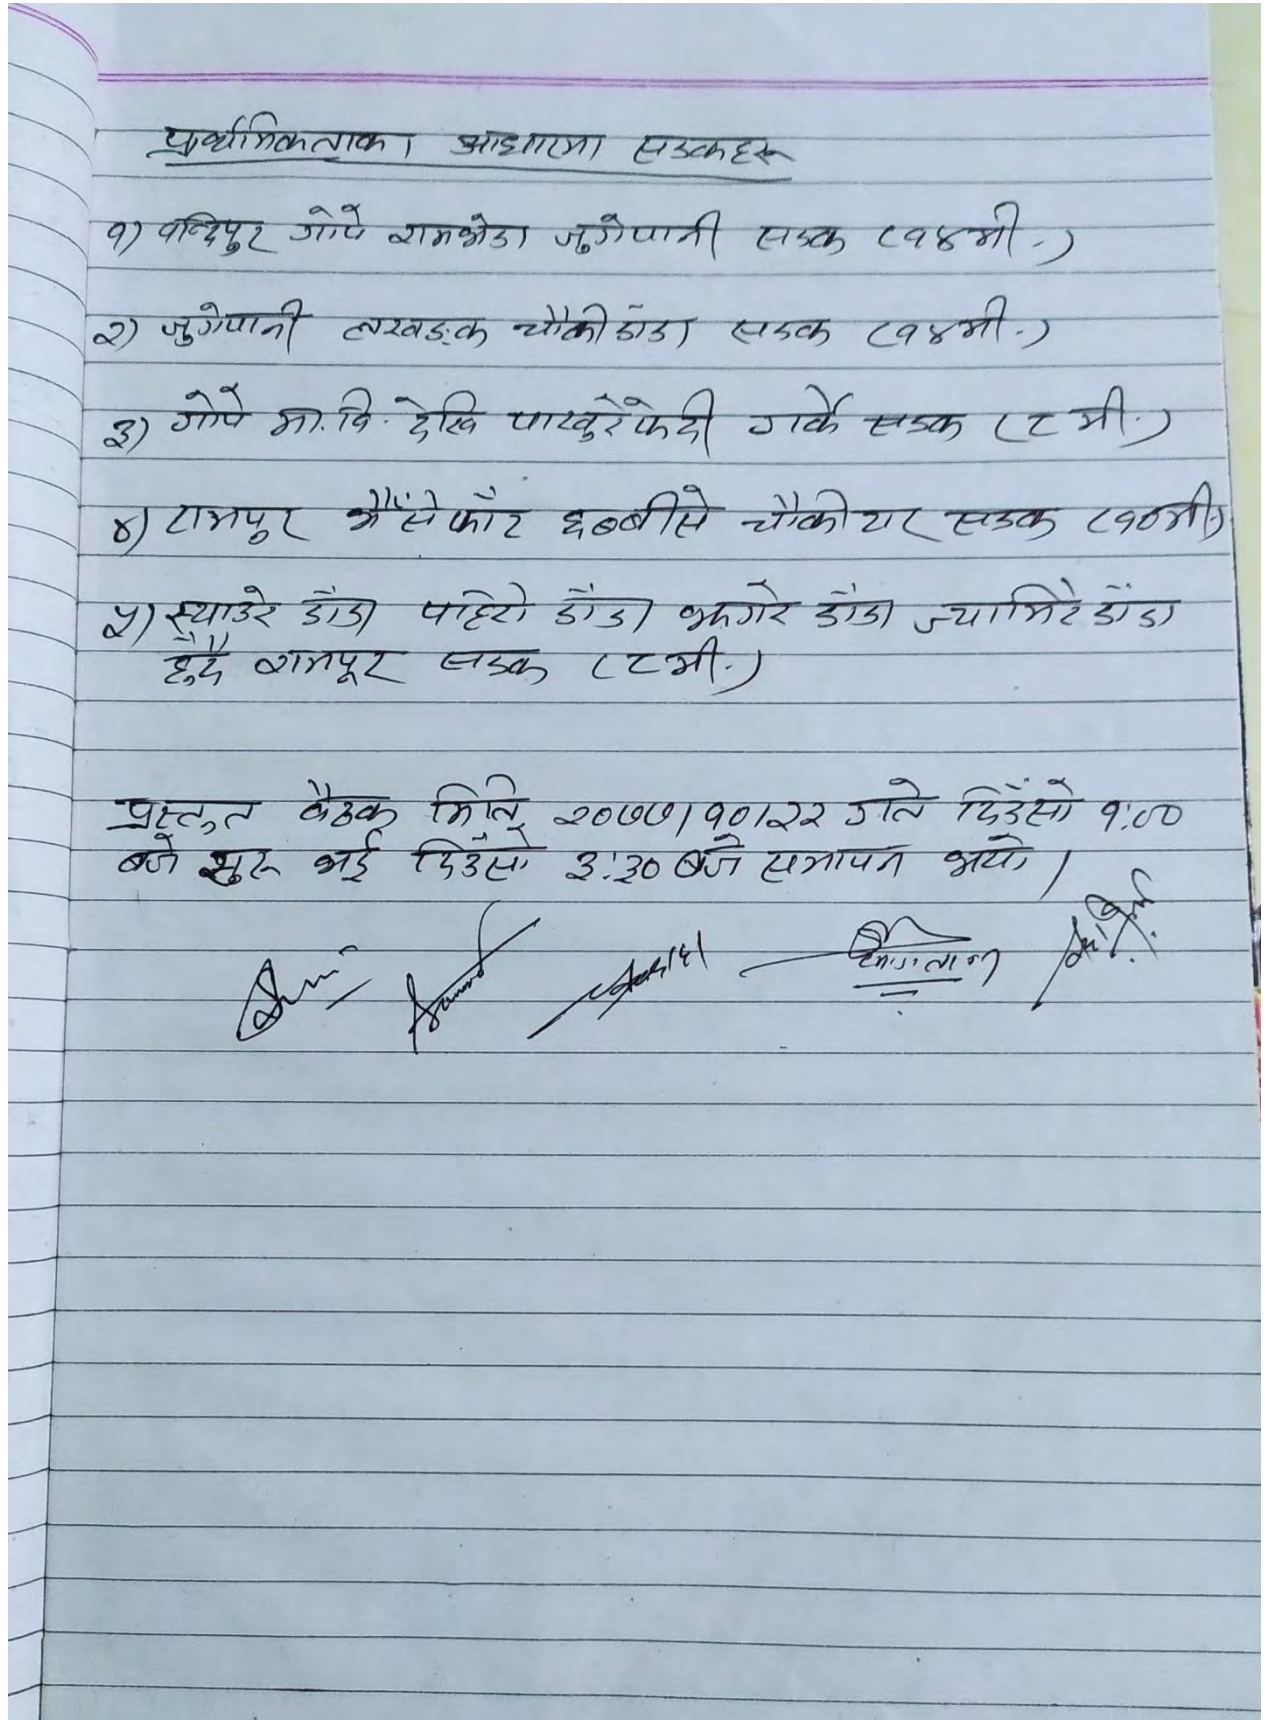 प्राथमिकताका आधारमा सडकहरू
१) वन्दिपुर गोपे रामभेडा जुगेपानी सडक (१४मी.)
२) जुगेपानी लखङ्क चौकीडाँडा सडक (१४मी.)
३) गोपे मा.वि. देखि पाखुरेफेदी गर्के सडक (८ मी.)
४) रामपुर भैंसेफाँट छब्बीसे चौकीयार सडक (१०मी.)
५) स्याउरे डाँडा पहिरो डाँडा झगरे डाँडा ज्यामिरे डाँडा
हुँदै रामपूर सडक (८मी.)
प्रस्तुत बैठक मिति २०७७।१०।२२ गते दिउँसो १:००
बजे शुरू भई दिउँसो ३:३० बजे समापन भयो ।